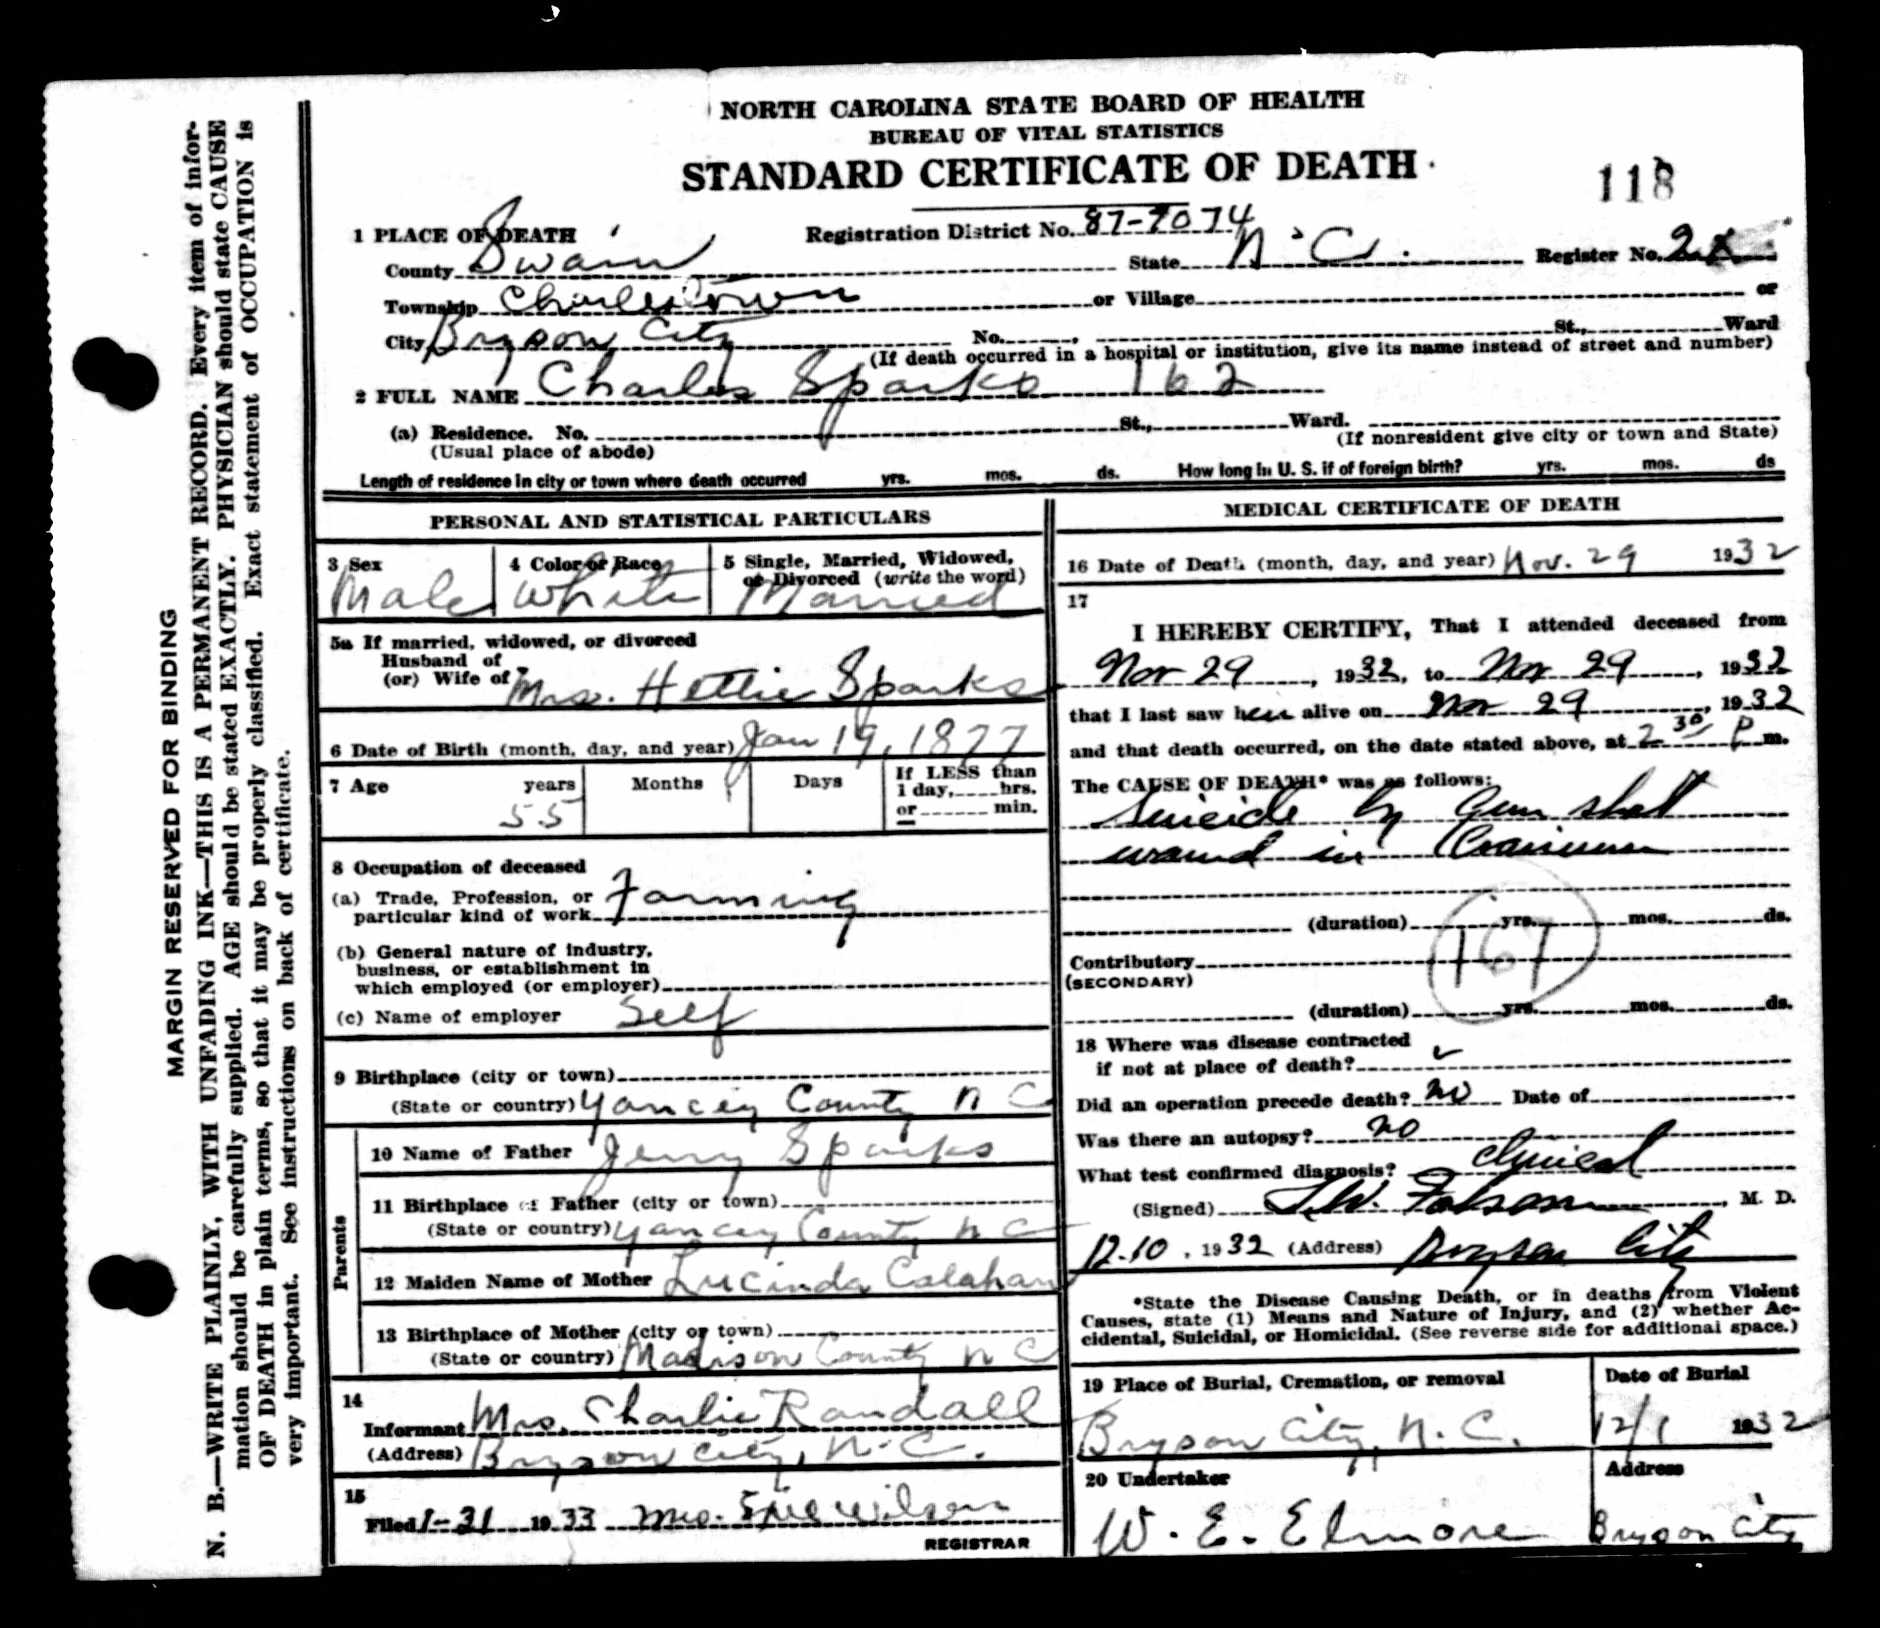 NORTH CAROLINA STATE BOARD OF HEALTH
BUREAU OF VITAL STATISTICS
STANDARD CERTIFICATE OF DEATH
118
1 PLACE OF DEATH
Registration District No. 87-7074
County Swain State N.C. Register No.
Township Charlestown or Village or
City Bryson City No. St., Ward
(If death occurred in a hospital or institution, give its name instead of street and number)
2 FULL NAME Charles Sparks 162
(a) Residence. No. St., Ward.
(Usual place of abode) (If nonresident give city or town and State)
Length of residence in city or town where death occurred yrs. mos. ds. How long in U. S. if of foreign birth? yrs. mos. ds
PERSONAL AND STATISTICAL PARTICULARS
3 Sex 4 Color or Race 5 Single, Married, Widowed,
or Divorced (write the word)
Male White Married
5a If married, widowed, or divorced
Husband of
(or) Wife of Mrs. Hettie Sparks
6 Date of Birth (month, day, and year) Jan 19, 1877
7 Age years Months Days If LESS than
1 day, hrs.
or min.
55
8 Occupation of deceased
(a) Trade, Profession, or
particular kind of work Farming
(b) General nature of industry,
business, or establishment in
which employed (or employer)
(c) Name of employer Self
9 Birthplace (city or town)
(State or country) Yancey County N C
Parents
10 Name of Father Jerry Sparks
11 Birthplace of Father (city or town)
(State or country) Yancey County N C
12 Maiden Name of Mother Lucinda Calahan
13 Birthplace of Mother (city or town)
(State or country) Madison County N C
14
Informant Mrs. Charlie Randall
(Address) Bryson City, N.C.
15
Filed 1-31 1933 Mrs. Wilson
REGISTRAR
MEDICAL CERTIFICATE OF DEATH
16 Date of Death (month, day, and year) Nov. 29 1932
17
I HEREBY CERTIFY, That I attended deceased from
Nov 29, 1932, to Nov 29, 1932
that I last saw h alive on Nov 29, 1932
and that death occurred, on the date stated above, at 2 30 P m.
The CAUSE OF DEATH* was as follows:
Suicide by Gun shot
wound in Cranium
(duration) yrs. mos. ds.
167
Contributory
(SECONDARY)
(duration) yrs. mos. ds.
18 Where was disease contracted
if not at place of death?
Did an operation precede death? no Date of
Was there an autopsy? no
What test confirmed diagnosis? clinical
(Signed) Folsom, M. D.
12-10, 1932 (Address) Bryson City
*State the Disease Causing Death, or in deaths from Violent
Causes, state (1) Means and Nature of Injury, and (2) whether Ac-
cidental, Suicidal, or Homicidal. (See reverse side for additional space.)
19 Place of Burial, Cremation, or removal Date of Burial
Bryson City, N.C. 12/1 1932
20 Undertaker Address
W. E. Elmore Bryson City
MARGIN RESERVED FOR BINDING
N. B.—WRITE PLAINLY, WITH UNFADING INK—THIS IS A PERMANENT RECORD. Every item of infor-
mation should be carefully supplied. AGE should be stated EXACTLY. PHYSICIAN should state CAUSE
OF DEATH in plain terms, so that it may be properly classified. Exact statement of OCCUPATION is
very important. See instructions on back of certificate.